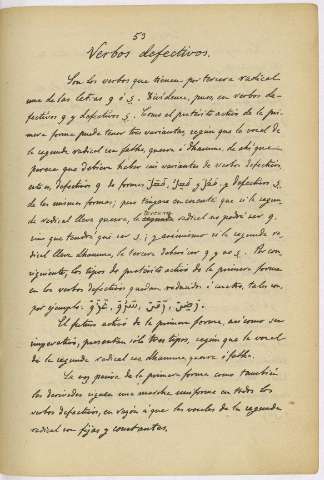 53
Verbos defectivos.
Son los verbos que tienen por tercera radical
una de las letras و ó ي. Divídense, pues, en verbos de-
fectivos و y defectivos ي. Como el pretérito activo de la pri-
mera forma puede tener tres variantes según que la vocal de
la segunda radical sea fatha, quesra ó dhamma, de ahí que
parezca que debiera haber seis variantes de verbos defectivos
esto es, defectivos و de formas فَعَلَ, فَعِلَ y فَعُلَ y defectivos ي
de las mismas formas; pero téngase en cuenta que si la segun-
da radical lleva quesra, la tercera radical no podrá ser و
sino que tendrá que ser ي; y asimismo si la segunda ra-
dical lleva dhamma, la tercera deberá ser و y no ي. Por con-
siguiente, los tipos de pretérito activo de la primera forma
en los verbos defectivos quedan reducidos á cuatro, tales son,
por ejemplo:
El futuro activo de la primera forma, así como su
imperativo, presentan sólo tres tipos, según que la vocal
de la segunda radical sea dhamma, quesra ó fatha.
La voz pasiva de la primera forma como también
las derivadas siguen una marcha uniforme en todos los
verbos defectivos, en razón á que las vocales de la segunda
radical son fijas y constantes.